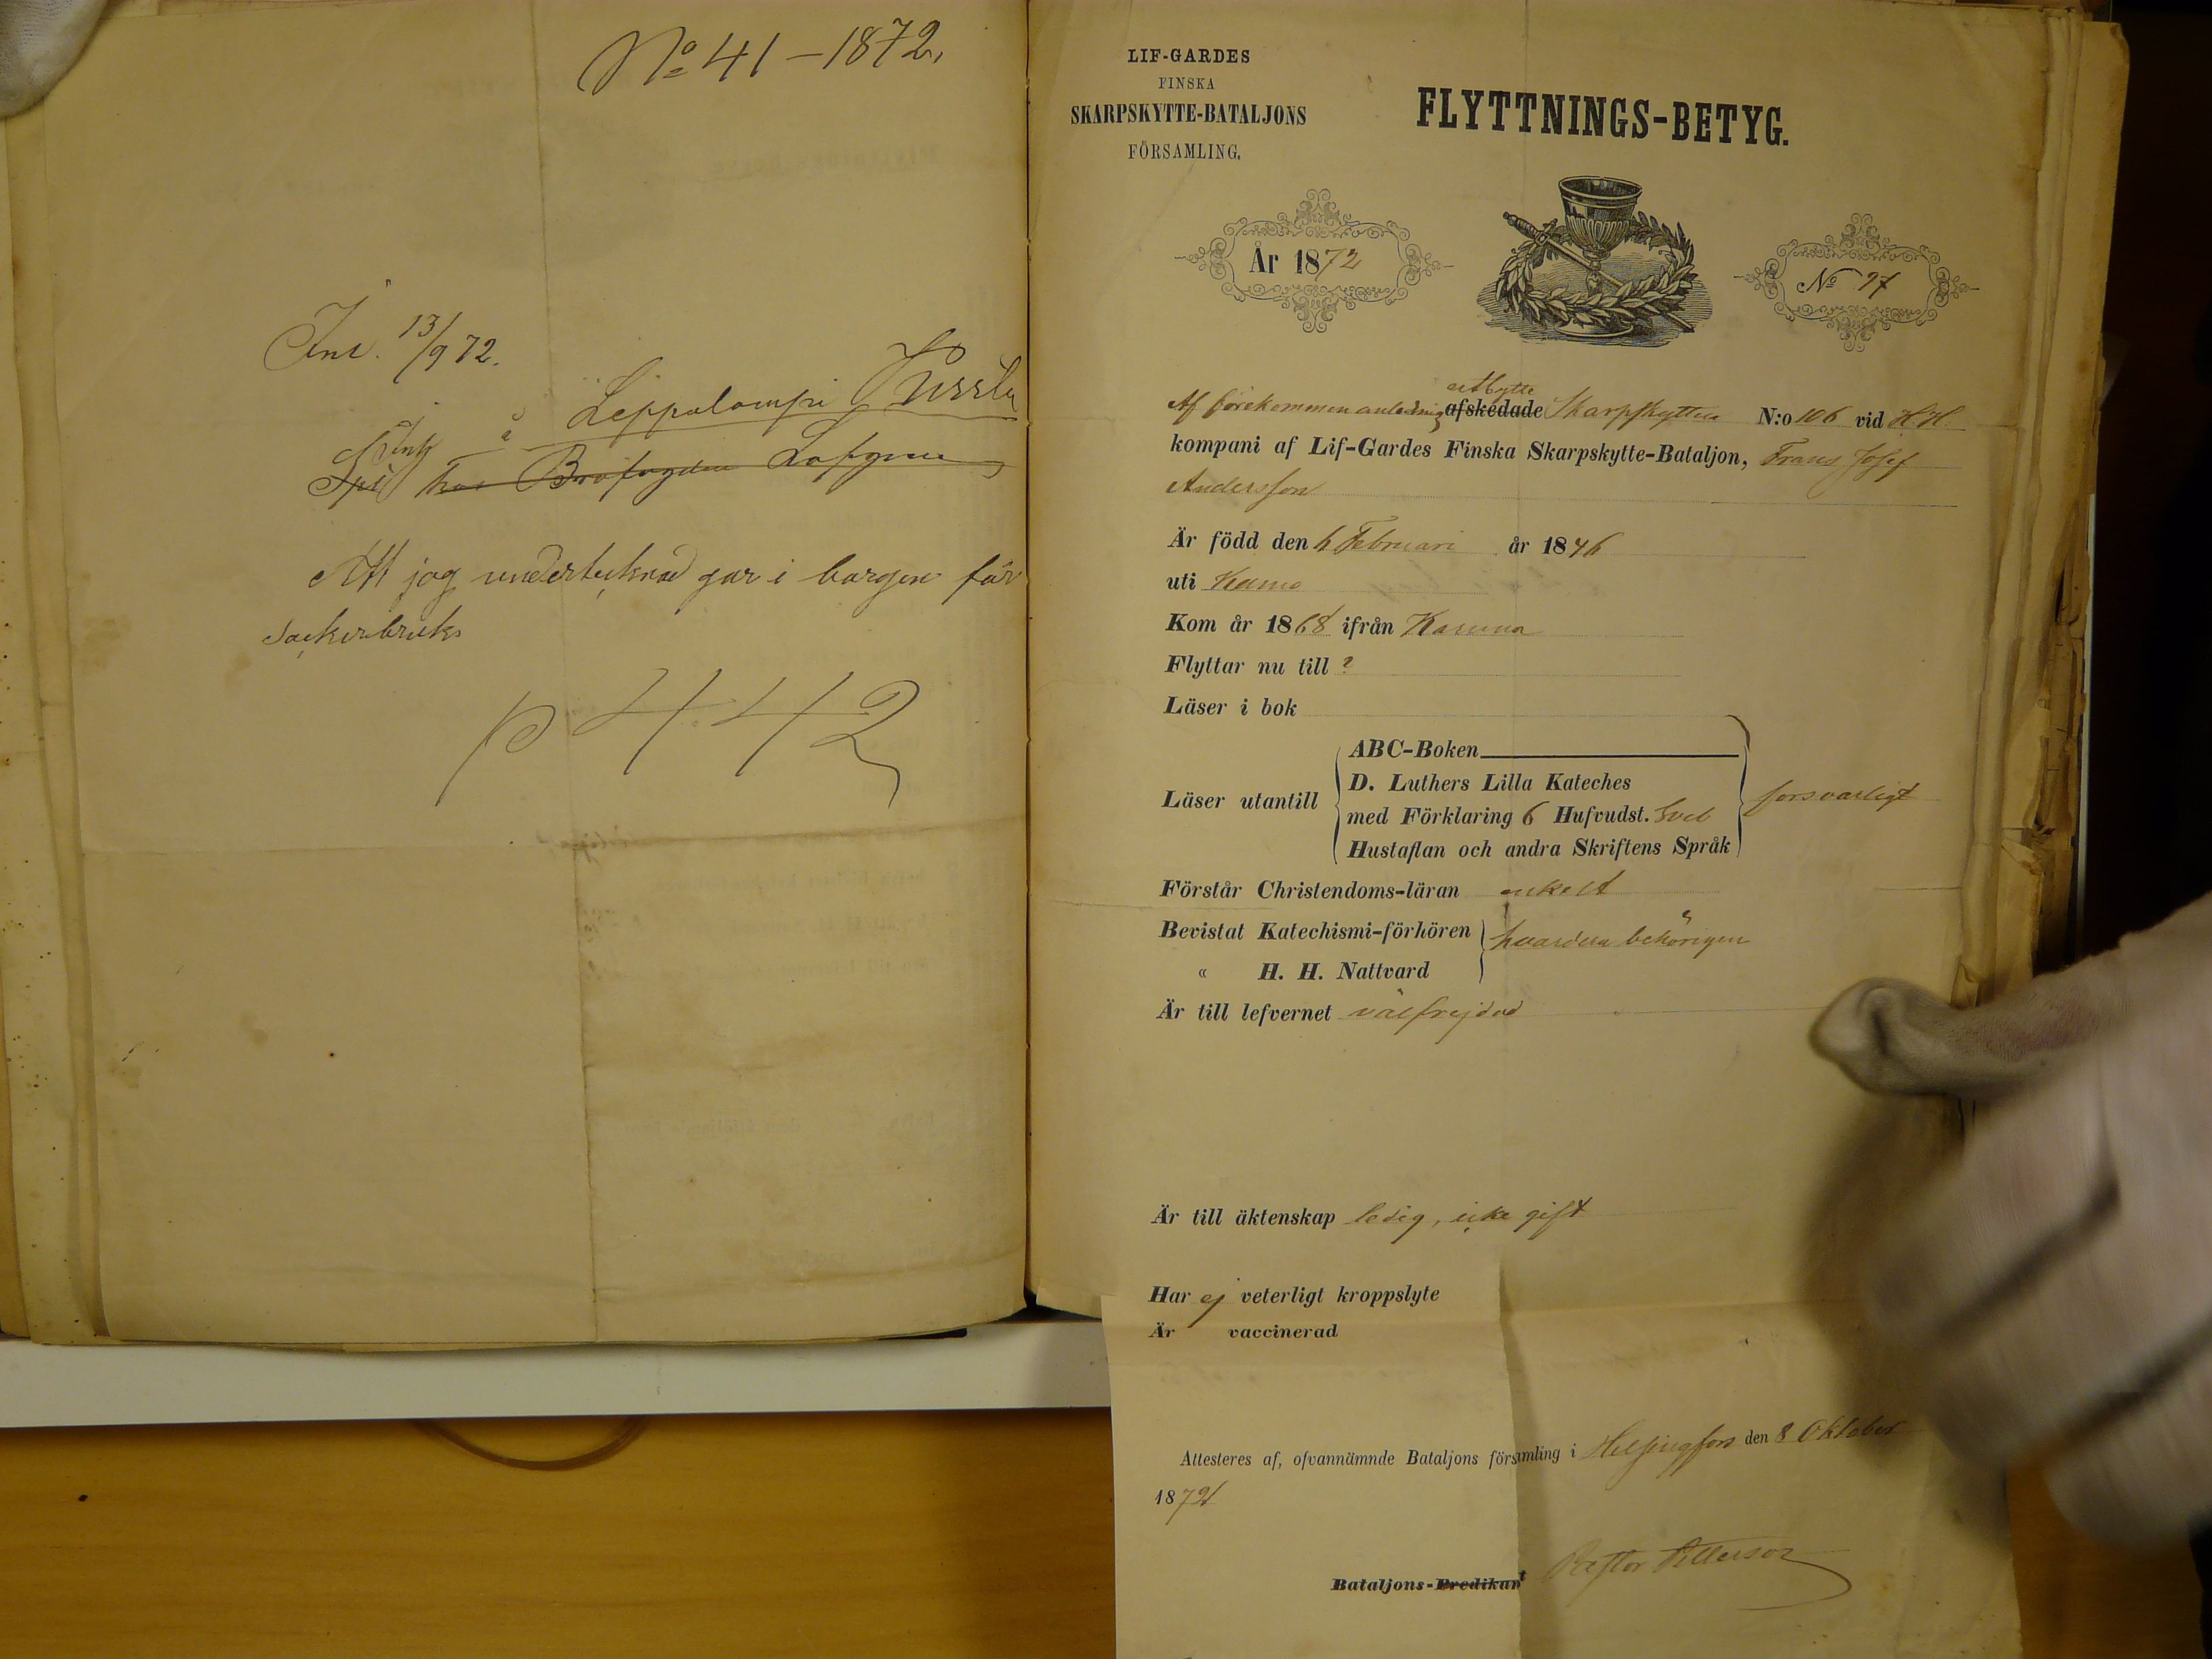 No 41 – 1872.
Inl. 13/9 72.
å Leppalampi
hos Lofgren
Att jag undertecknad gar i borgen for
sockerbruks
p 442
LIF-GARDES
FINSKA
SKARPSKYTTE-BATALJONS
FÖRSAMLING.
FLYTTNINGS-BETYG.
År 1872
No 97
utbytte
Af förekommen anledning afskedade Skarpskytten N:o 106 vid
kompani af Lif-Gardes Finska Skarpskytte-Bataljon, Frans Josef
Andersson
Är född den 6 Februari år 1846
uti
Kom år 1868 ifrån Karuna
Flyttar nu till ?
Läser i bok
Läser utantill
ABC-Boken
D. Luthers Lilla Kateches
med Förklaring 6 Hufvudst. Sveb
Hustaflan och andra Skriftens Språk
forsvarligt
Förstår Christendoms-läran enkelt
Bevistat Katechismi-förhören
« H. H. Nattvard
hvardera behörigen
Är till lefvernet välfrejdad
Är till äktenskap ledig, icke gift
Har ej veterligt kroppslyte
Är vaccinerad
Attesteres af, ofvannämnde Bataljons församling i Helsingfors den 8 Oktober
1872
Bataljons-Predikant